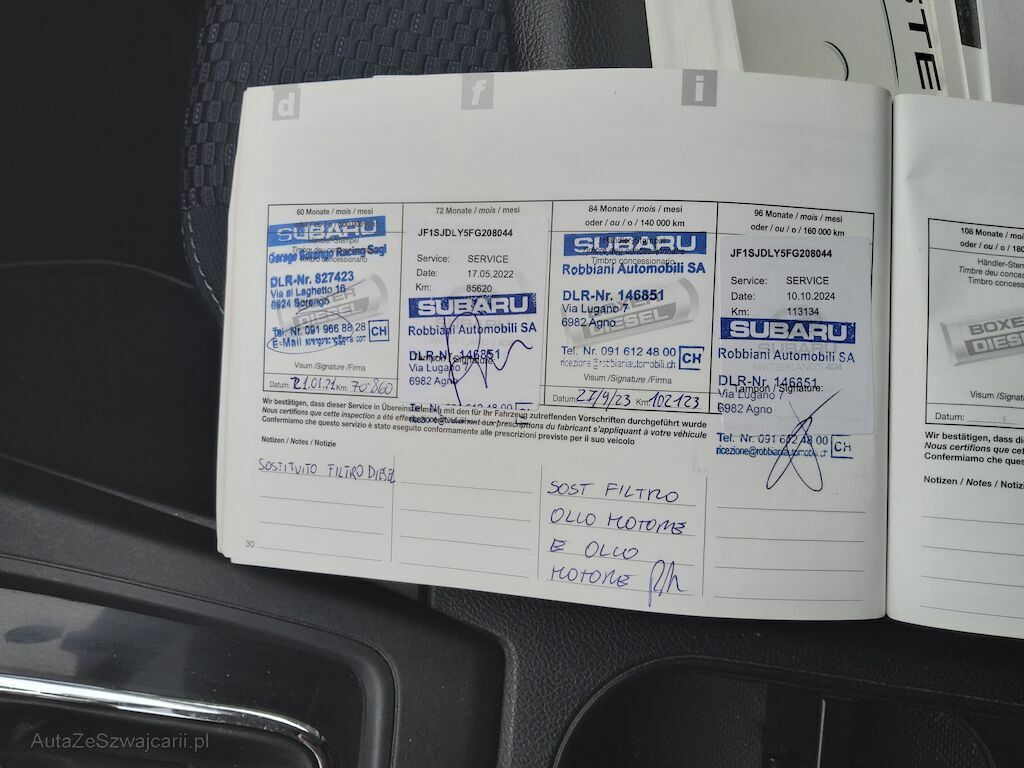 STE
d f i
60 Monate / mois / mesi
SUBARU
Garage Sorengo Racing Sagl
Timbro concessionario
DLR-Nr. 827423
Via al Laghetto 16
6924 Sorengo
Tel. Nr. 091 966 88 28 CH
E-Mail
Visum /Signature /Firma
Datum: 21.01.21 Km: 70'860
72 Monate / mois / mesi
JF1SJDLY5FG208044
Service: SERVICE
Date: 17.05.2022
Km: 85620
SUBARU
Robbiani Automobili SA
DLR-Nr. 146851
Via Lugano 7
6982 Agno
84 Monate / mois / mesi
oder / ou / o / 140 000 km
SUBARU
Timbro concessionario
Robbiani Automobili SA
DLR-Nr. 146851
Via Lugano 7
6982 Agno
DIESEL
Tel. Nr. 091 612 48 00 CH
ricezione@robbianiautomobili.ch
Visum /Signature /Firma
Datum: 27/9/23 Km: 102123
96 Monate / mois / mesi
oder / ou / o / 160 000 km
JF1SJDLY5FG208044
Service: SERVICE
Date: 10.10.2024
Km: 113134
SUBARU
Robbiani Automobili SA
DLR-Nr. 146851
Tampon / Signature
Via Lugano 7
6982 Agno
Tel. Nr. 091 612 48 00 CH
ricezione@robbianiautomobili.ch
Wir bestätigen, dass dieser Service in Übereinstimmung mit den für Ihr Fahrzeug zutreffenden Vorschriften durchgeführt wurde
Nous certifions que cet inspection a été effectuée conformément aux prescriptions du fabricant s'appliquant à votre véhicule
Confermiamo che questo servizio è stato eseguito conformemente alle prescrizioni previste per il suo veicolo
Notizen / Notes / Notizie
SOSTITUITO FILTRO DIESEL
SOST FILTRO
OLIO MOTORE
E OLIO
MOTORE
30
108 Monate / mois
oder / ou / o / 180
Händler-Stem
Timbre deu conces
Timbro concession
BOXE
DIESE
Visum/Signatur
Datum:
Wir bestätigen, dass dies
Nous certifions que cet
Confermiamo che ques
Notizen / Notes / Notiz
AutaZeSzwajcarii.pl